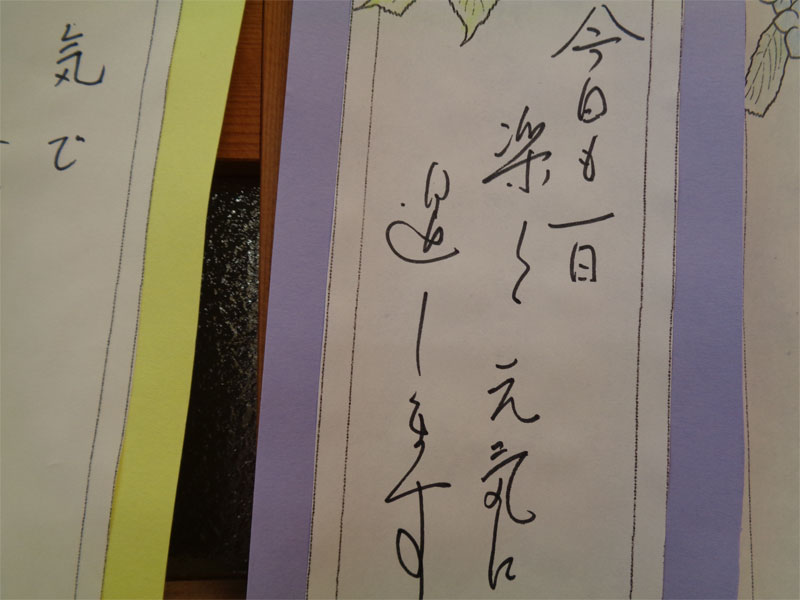 今日も一日
楽しく元気に
過します
気で